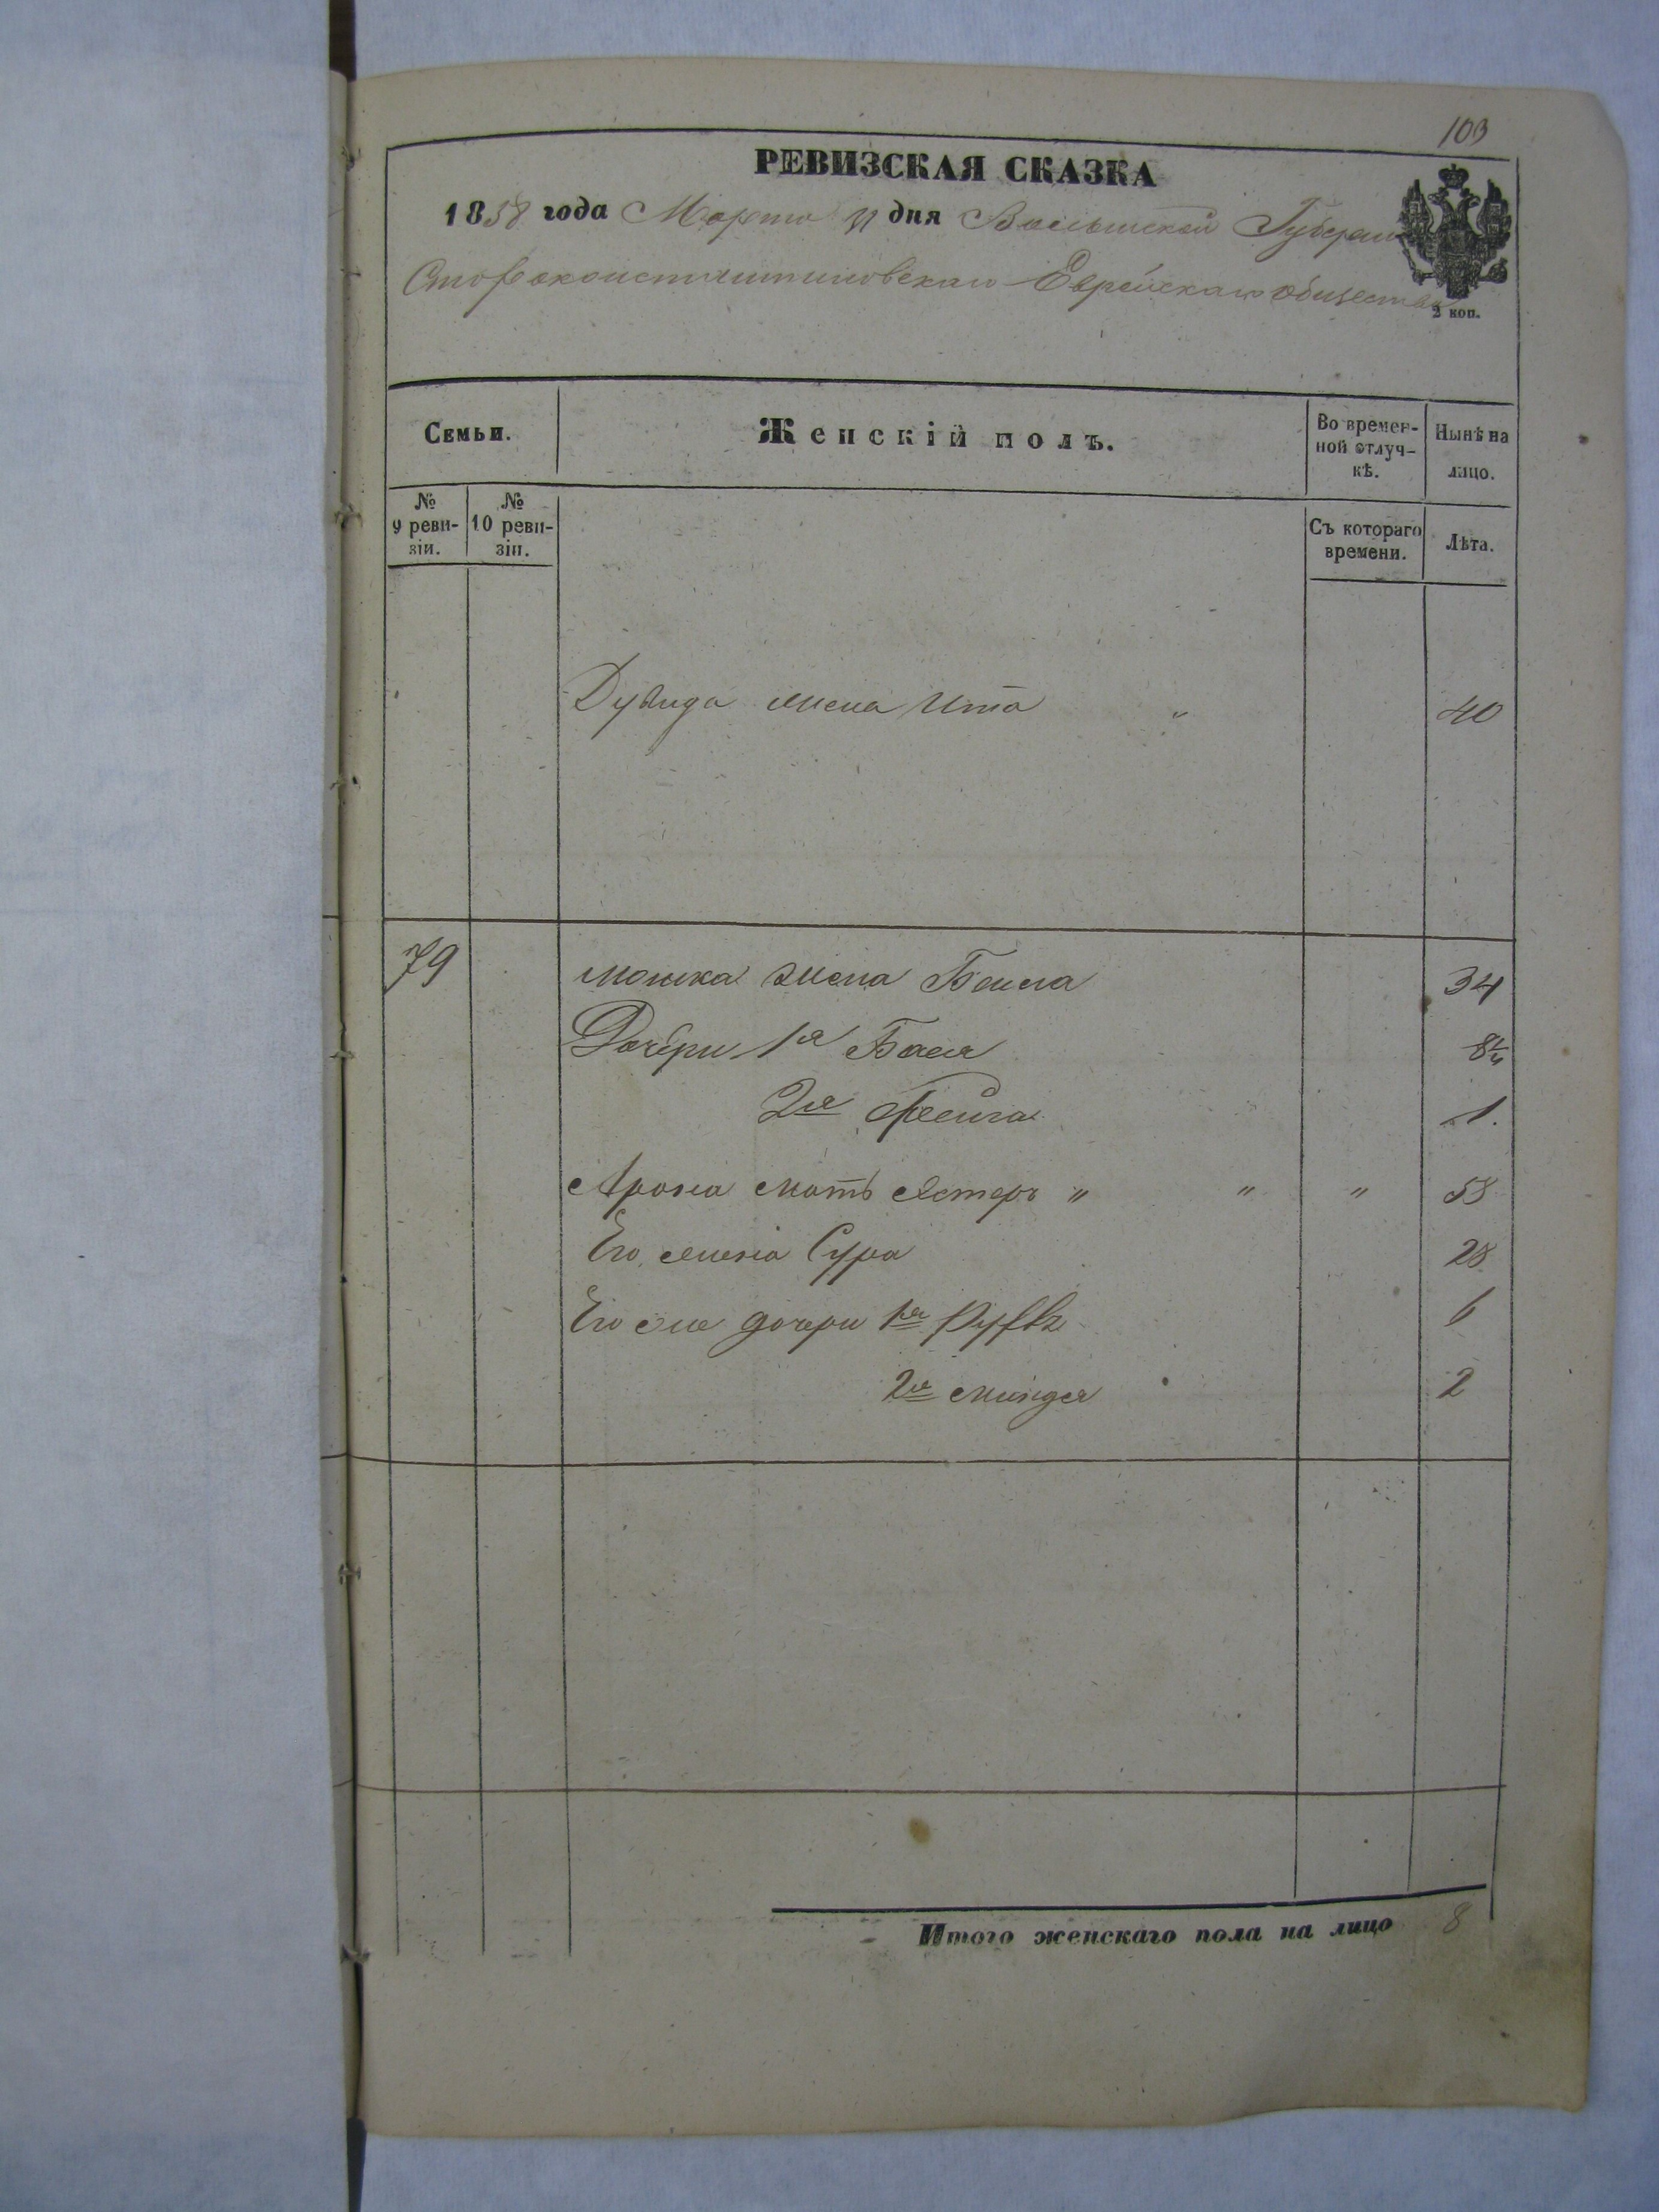 103
РЕВИЗСКАЯ СКАЗКА
1858 года Марта 31 дня Волынской Губернiи
Староконстантиновскаго Еврейскаго общества
2 коп.
Семьи.
Женскiй полъ.
Во времен-
ной отлуч-
кѣ.
Нынѣ на
лицо.
№
9 реви-
зiи.
№
10 реви-
зiи.
Съ котораго
времени.
Лѣта.
Дувида жена Ита " 40
79 Мошка жена Бейла 34
Дочери 1я Бася 8¼
2я Фейга 1.
Арона мать Эстеръ " " " 58
Его жена Сура 28
Его же дочери 1я 6
2яМиндя 2
Итого женскаго пола на лицо 8